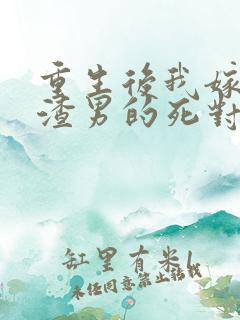 重生後我嫁
渣男的死對
缸里有米l
未经同意禁止转载